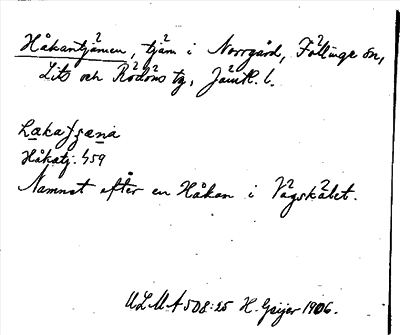 Håkantjärnen, tjärn i Norrgård, Föllinge sn,
Lits och Rödöns tg, Jämtl. l.
Håkatj. 459
Namnet efter en Håkan i Vågskålet.
ULMA 508:25 H. Geijer 1906.